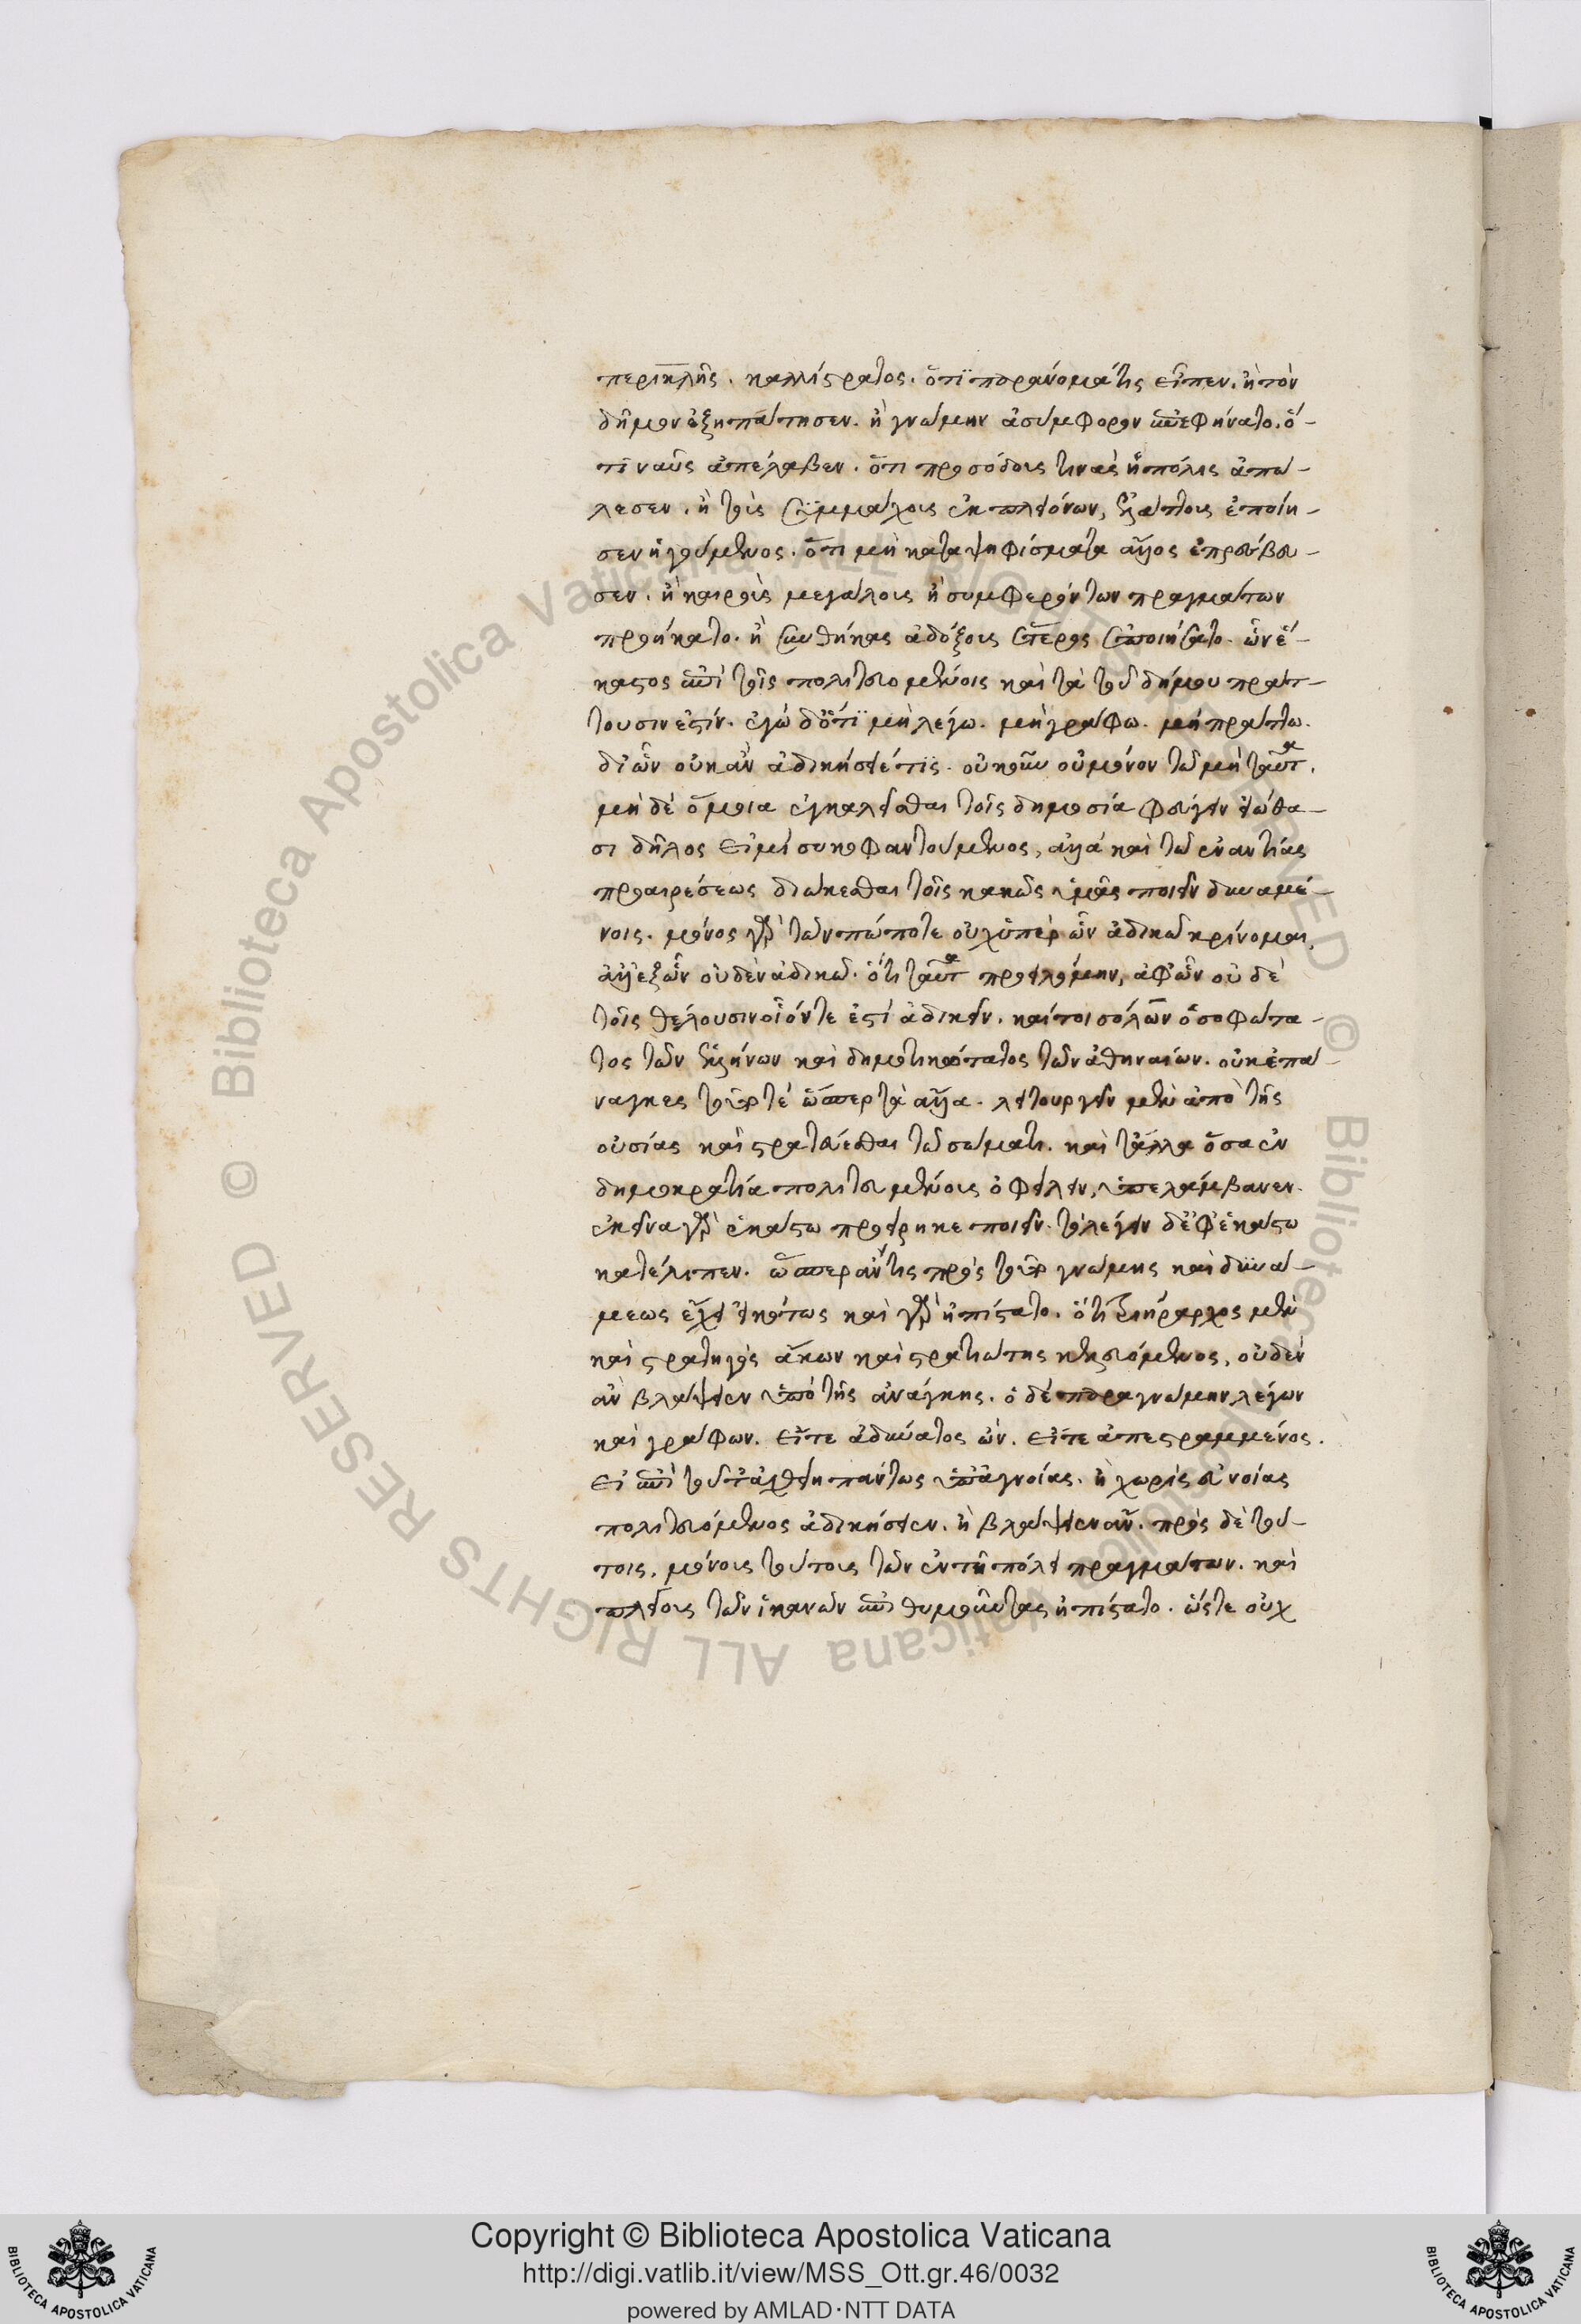 περικλῆς. καλλίστρατος. ὅτι παράνομά τις εἶπεν. ἢ τὸν
δῆμον ἐξηπάτησεν. ἢ γνώμην ἀσύμφορον ἀπεφήνατο. ὅ-
τι ναῦς ἀπέλαβεν. ὅτι προσόδους τινὰς ἡ πόλις ἀπώ-
λεσεν. ἢ τοὺς συμμάχους ἐκ πλειόνων, ἐλάττους ἐποίη-
σεν ἡγούμενος. ὅτι μὴ κατὰ ψηφίσματα ἄλλος ἐπρέσβευ-
σεν. ἢ καιροὺς μεγάλους ἢ συμφερόντων πραγμάτων
προήκατο. ἢ συνθήκας ἀδόξους ἕτερος ἐποιήσατο. ὧν ἕ-
καστος ἐπὶ τοῖς πολιτευομένοις καὶ τὰ τοῦ δήμου πράτ-
τουσιν ἐστίν. ἐγὼ δ' ὅτι μὴ λέγω. μὴ γράφω. μὴ πράττω.
δι' ὧν οὐκ ἂν ἀδικήσειέ τις. οὐκοῦν οὐ μόνον τῷ μὴ ταῦτα.
μηδὲ ὅμοια ἐγκαλεῖσθαι τοῖς δημοσίᾳ φεύγειν εἰωθό-
σι δῆλός εἰμι συκοφαντούμενος, ἀλλὰ καὶ τῷ ἐναντίας
προαιρέσεως διώκεσθαι τοῖς κακῶς ὑμᾶς ποιεῖν δυναμέ-
νοις. μόνος γὰρ τῶν πώποτε οὐχ ὑπὲρ ὧν ἀδικῶ κρίνομαι,
ἀλλ' ἐξ ὧν οὐδὲν ἀδικῶ. ὅτι ταῦτα προειλόμην, ἀφ' ὧν οὐδὲ
τοῖς θέλουσιν οἷόν τε ἐστὶ ἀδικεῖν. καίτοι σόλων ὁ σοφώτα-
τος τῶν ἑλλήνων καὶ δημοτικώτατος τῶν ἀθηναίων. οὐκ ἐπά-
ναγκες τοῦτό τε ὥσπερ τὰ ἄλλα. λειτουργεῖν μὲν ἀπὸ τῆς
οὐσίας καὶ στρατεύεσθαι τῷ σώματι. καὶ τἄλλα ὅσα ἐν
δημοκρατίᾳ πολιτευομένους ὀφείλειν, ὑπελάμβανεν.
ἐκεῖνα γὰρ ἑκάστῳ προείρηκε ποιεῖν. τὸ λέγειν δὲ ἐφ' ἑκάστῳ
κατέλιπεν. ὥσπερ ἄν τις πρὸς τοῦτο γνώμης καὶ δυνά-
μεως ἔχει εἰκότως καὶ γὰρ ἠπίστατο. ὅτι τριήραρχος μὲν
καὶ στρατηγὸς ἄκων καὶ στρατιώτης κτησιόμενος, οὐδὲν
ἂν βλάψειεν ὑπὸ τῆς ἀνάγκης. ὁ δὲ παρὰ γνώμην λέγων
καὶ γράφων. εἴτε ἀδύνατος ὤν. εἴτε ἀπεστραμμένος.
εἰ ἐπὶ τοῦτ' ἀχθείη πάντως ὑπὸ ἀγνοίας. ἢ χωρὶς εὐνοίας
πολιτευόμενος ἀδικήσειεν. ἢ βλάψειεν ἄν. πρὸς δὲ τού-
τοις. μόνοις τούτοις τῶν ἐν τῇ πόλει πραγμάτων. καὶ
πλείους τῶν ἱκανῶν ἐπιθυμοῦντας ἠπίστατο. ὥστε οὐχ
Copyright © Biblioteca Apostolica Vaticana
http://digi.vatlib.it/view/MSS_Ott.gr.46/0032
powered by AMLAD·NTT DATA